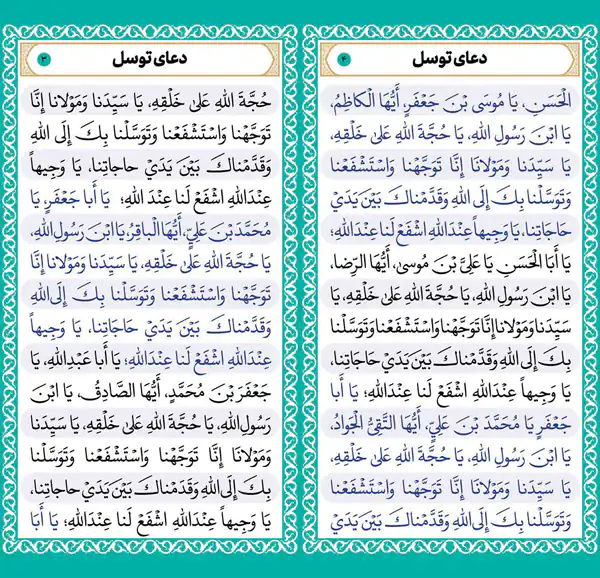 دعای توسل
۳
حُجَّةَ اللهِ عَلىٰ خَلْقِهِ، يَا سَيِّدَنا وَمَوْلانا إِنَّا
تَوَجَّهْنا وَاسْتَشْفَعْنا وَتَوَسَّلْنا بِكَ إِلَى اللهِ
وَقَدَّمْناكَ بَيْنَ يَدَيْ حاجاتِنا، يَا وَجِيهاً
عِنْدَاللهِ اشْفَعْ لَنا عِنْدَ اللهِ؛ يَا أَبا جَعْفَرٍ، يَا
مُحَمَّدَ بْنَ عَلِيٍّ، أَيُّهَا الْباقِرُ، يَا ابْنَ رَسُولِ اللهِ،
يَا حُجَّةَ اللهِ عَلىٰ خَلْقِهِ، يَا سَيِّدَنا وَمَوْلانا إِنَّا
تَوَجَّهْنا وَاسْتَشْفَعْنا وَتَوَسَّلْنا بِكَ إِلَى اللهِ
وَقَدَّمْناكَ بَيْنَ يَدَيْ حَاجَاتِنا، يَا وَجِيهاً
عِنْدَاللهِ اشْفَعْ لَنا عِنْدَاللهِ؛ يَا أَبا عَبْدِاللهِ، يَا
جَعْفَرَ بْنَ مُحَمَّدٍ، أَيُّهَا الصَّادِقُ، يَا ابْنَ
رَسُولِ اللهِ، يَا حُجَّةَ اللهِ عَلىٰ خَلْقِهِ، يَا سَيِّدَنا
وَمَوْلانا إِنَّا تَوَجَّهْنا وَاسْتَشْفَعْنا وَتَوَسَّلْنا
بِكَ إِلَى اللهِ وَقَدَّمْناكَ بَيْنَ يَدَيْ حاجاتِنا،
يَا وَجِيهاً عِنْدَاللهِ اشْفَعْ لَنا عِنْدَاللهِ؛ يَا أَبَا
دعای توسل
۴
الْحَسَنِ، يَا مُوسَى بْنَ جَعْفَرٍ أَيُّهَا الْكاظِمُ،
يَا ابْنَ رَسُولِ اللهِ، يَا حُجَّةَ اللهِ عَلىٰ خَلْقِهِ،
يَا سَيِّدَنا وَمَوْلانَا إِنَّا تَوَجَّهْنا وَاسْتَشْفَعْنا
وَتَوَسَّلْنا بِكَ إِلَى اللهِ وَقَدَّمْناكَ بَيْنَ يَدَيْ
حَاجَاتِنا، يَا وَجِيهاً عِنْدَاللهِ اشْفَعْ لَنا عِنْدَاللهِ؛
يَا أَبَا الْحَسَنِ يَا عَلِيَّ بْنَ مُوسىٰ، أَيُّهَا الرِّضا،
يَا ابْنَ رَسُولِ اللهِ، يَا حُجَّةَ اللهِ عَلىٰ خَلْقِهِ، يَا
سَيِّدَنا وَمَوْلانا إِنَّا تَوَجَّهْنا وَاسْتَشْفَعْنا وَتَوَسَّلْنا
بِكَ إِلَى اللهِ وَقَدَّمْناكَ بَيْنَ يَدَيْ حَاجَاتِنا،
يَا وَجِيهاً عِنْدَاللهِ اشْفَعْ لَنا عِنْدَاللهِ؛ يَا أَبا
جَعْفَرٍ يَا مُحَمَّدَ بْنَ عَلِيٍّ، أَيُّهَا التَّقِيُّ الْجَوادُ،
يَا ابْنَ رَسُولِ اللهِ، يَا حُجَّةَ اللهِ عَلىٰ خَلْقِهِ،
يَا سَيِّدَنا وَمَوْلانَا إِنَّا تَوَجَّهْنا وَاسْتَشْفَعْنا
وَتَوَسَّلْنا بِكَ إِلَى اللهِ وَقَدَّمْناكَ بَيْنَ يَدَيْ